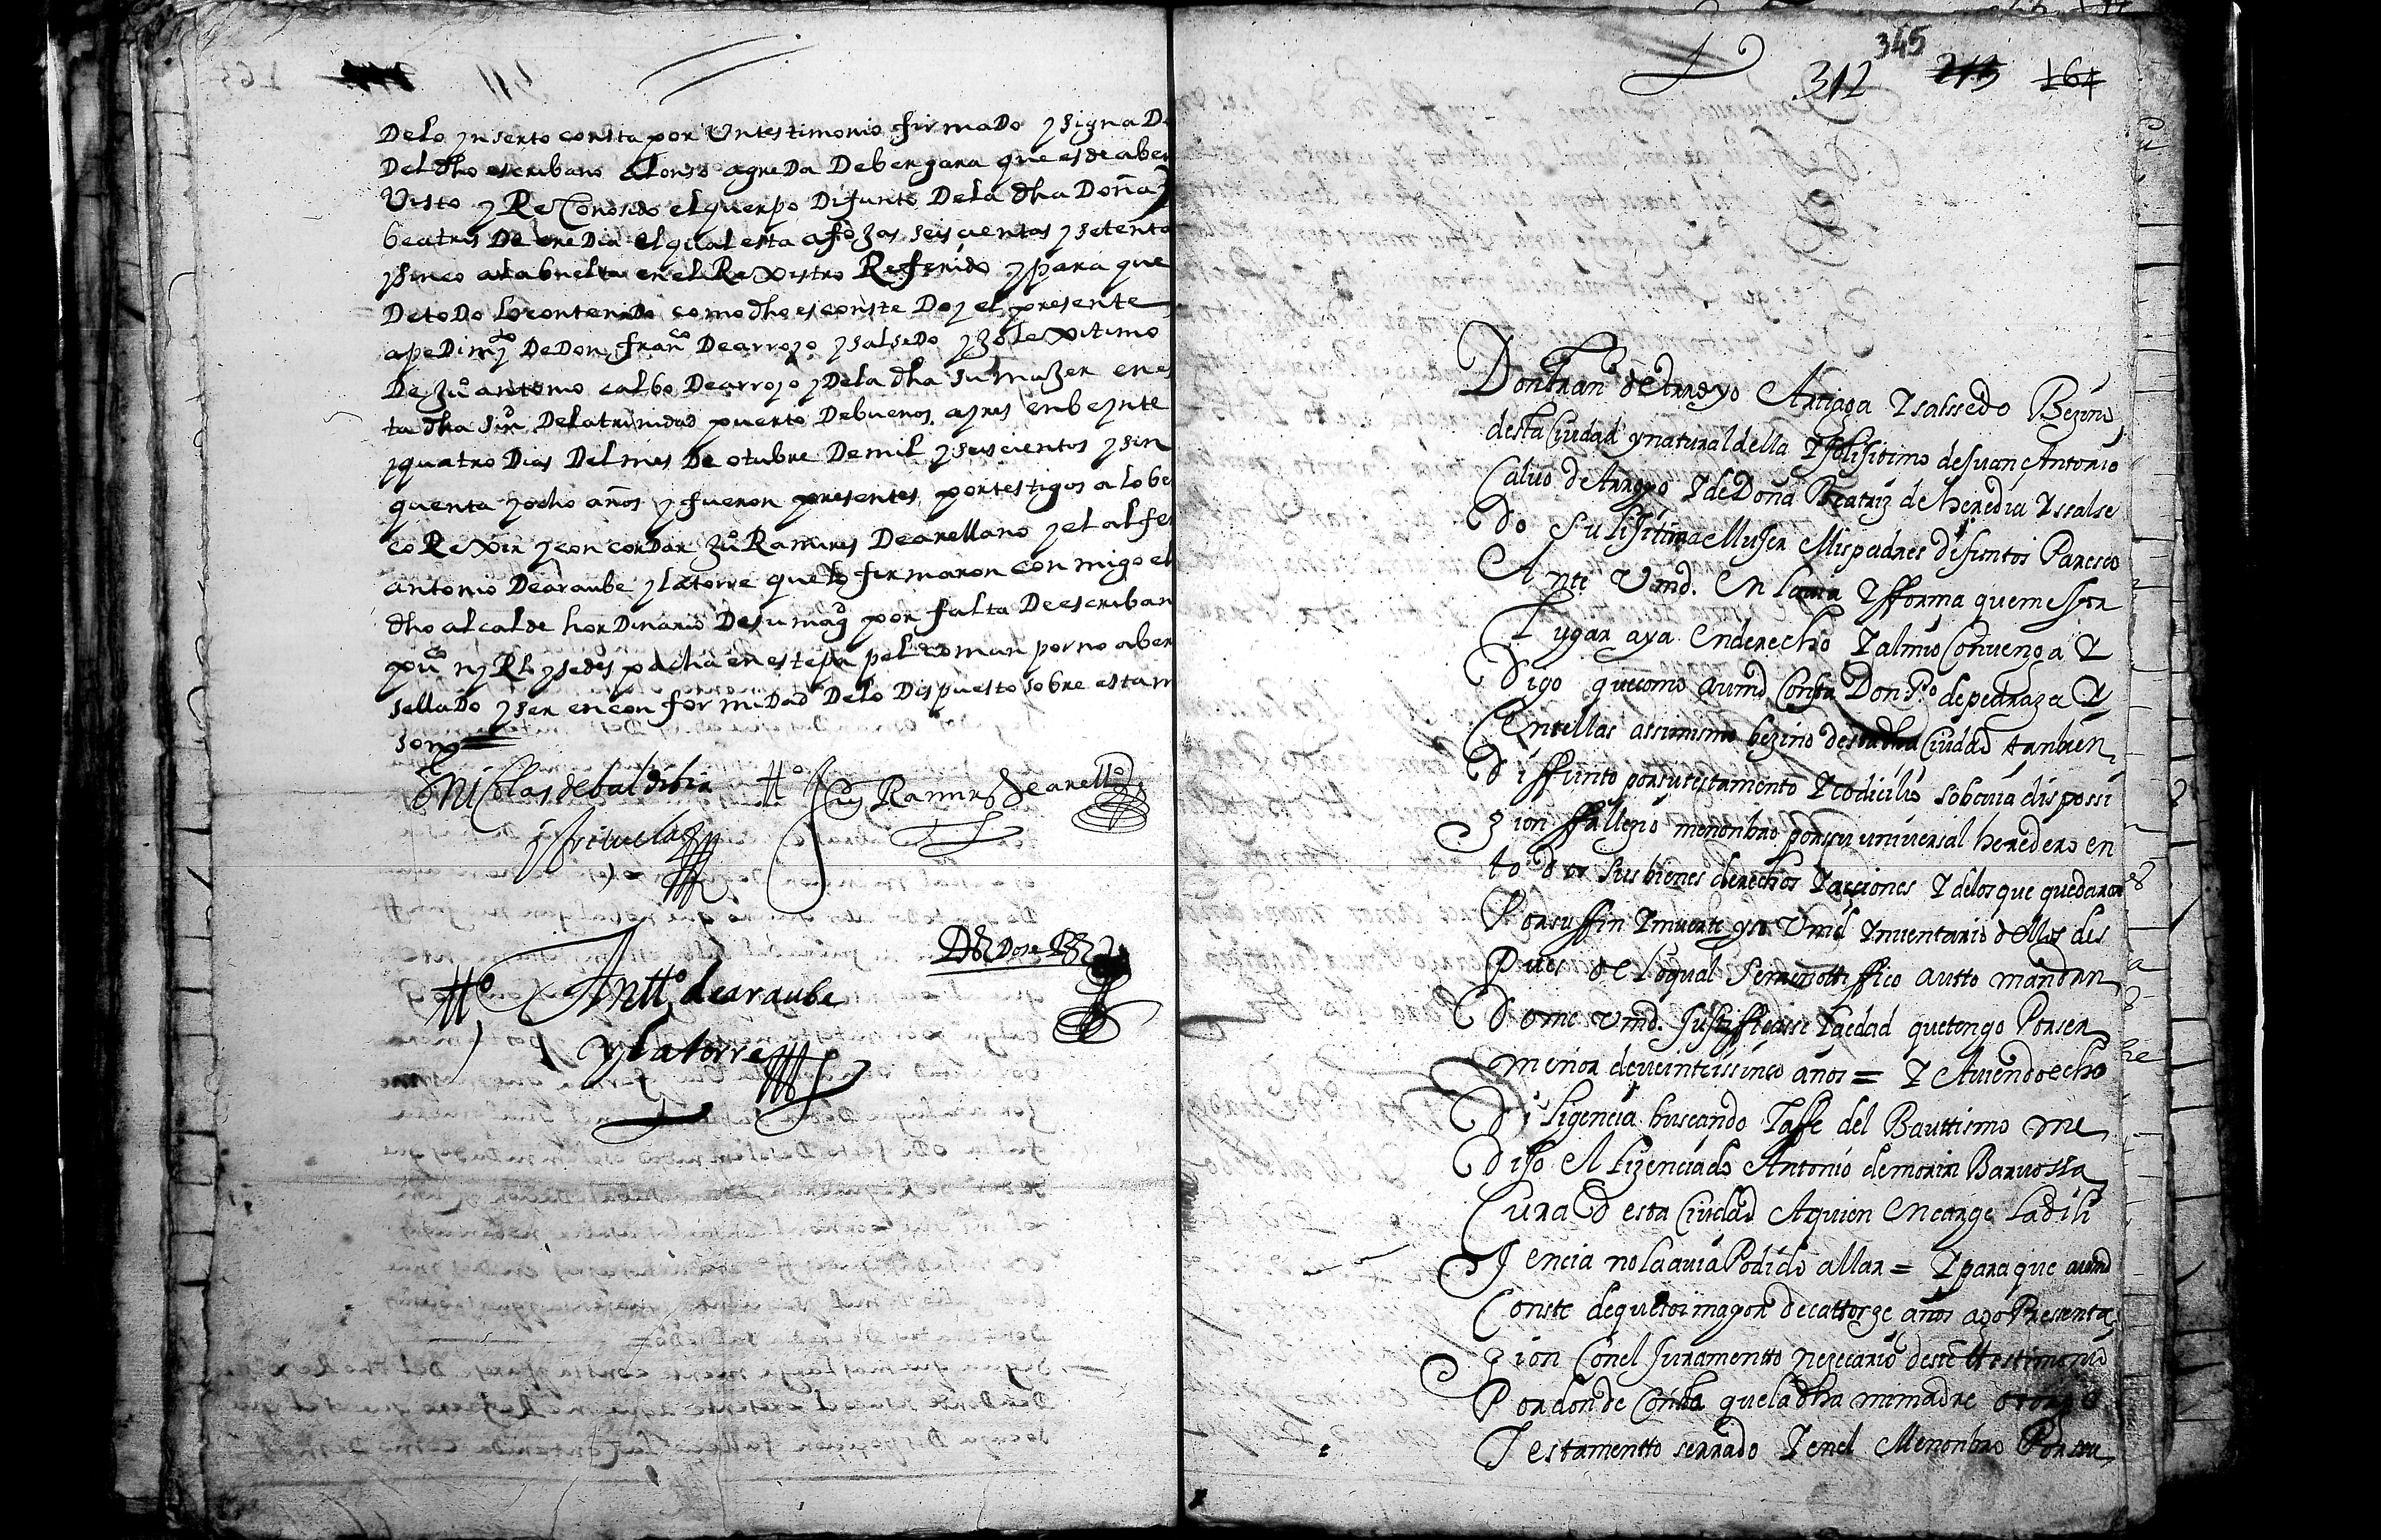 Delo ynserto consta por Untestimonio firmaDo ysignaDo
Del dho escribano Alonso agreDa Debergara que es de aber
Visto y ReConosido el querpo Difunto Dela dha Doña
beatris De ereDia el qual esta afoxas seiscientas ysetenta
ysinco ala buelta en el Rexistro Referido ypara que
DetoDo lo contenido como dho es conste Doy el presente
apeDimto DeDon franco Dearroyo ysalseDo yxo lexitimo
De Juo antonio calbo Dearroyo yDela dha su muxer enes
ta dha siu Delatrinidad puerto Debuenos ayres enbeynte
yquatro Dias Delmes De otubre Demil yseiscientos ysin
quenta yocho años yfueron presentes portestigos alobe
coRexir yconcordar Juo Ramires Dearellano yel alfe
antonio Dearaube ylatorre que lo firmaron conmigo el
dho alcalde horDinario Desu magd por falta Deescriban
puco ny Rl ysedespacha eneste papel coman porno aber
sellaDo yser enconforMidad Delo Dispuesto sobre esta
son
Nicolas de baldibia to Juo Ramirs de arello
y
Dos Dose Rs
to Antto de araube
y latorre
345
312 213 164
Don Franco de Arroyo Artiaga Y salssedo Bezino
desta Ciudad y natural della Y
 lisitimo de Juan Antonio
Calvo de Arroyo Y de Doña Beatriz de heredia Y salse
Do su lisitima Muser Mis padres difuntos Paresco
Ante Vmd. En la via Y fforma que mejor
Lugar aya En derecho Y al mio Convenga Y
Digo que como a vmd Consta Don Po de pedraza Y
Centellas assimismo bezino desta dha Ciudad tanbien
Diffunto por su testamento Y codicilio so cuia disposi
zion ffallezio me nonbro por su universal heredero en
todos sus bienes derechos Y acciones Y delos que quedaron
Por su ffin Y muerte yso Vmd Ynventario dellos des
Pues de lo qual se me nottiffico autto mandan
Dome vmd. Justifficasse la edad que tengo Por ser
menor de veinte i sinco años = Y Aviendo echo
Diligencia buscando la ffe del Bauttismo me
Dijo El Lizenciado Antonio de morin Barvossa
Cura d esta Ciudad A quien Encarge la dili
Jencia no la avia Podido allar = Y para que a vmd
Conste de que soi mayor de cattorze años ago Presenta
zion Con el Juramentto nezecario deste ttestimonio
Por donde Consta que la dha mi madre otorgo
Testamentto serrado Y en el Me nonbro Por su